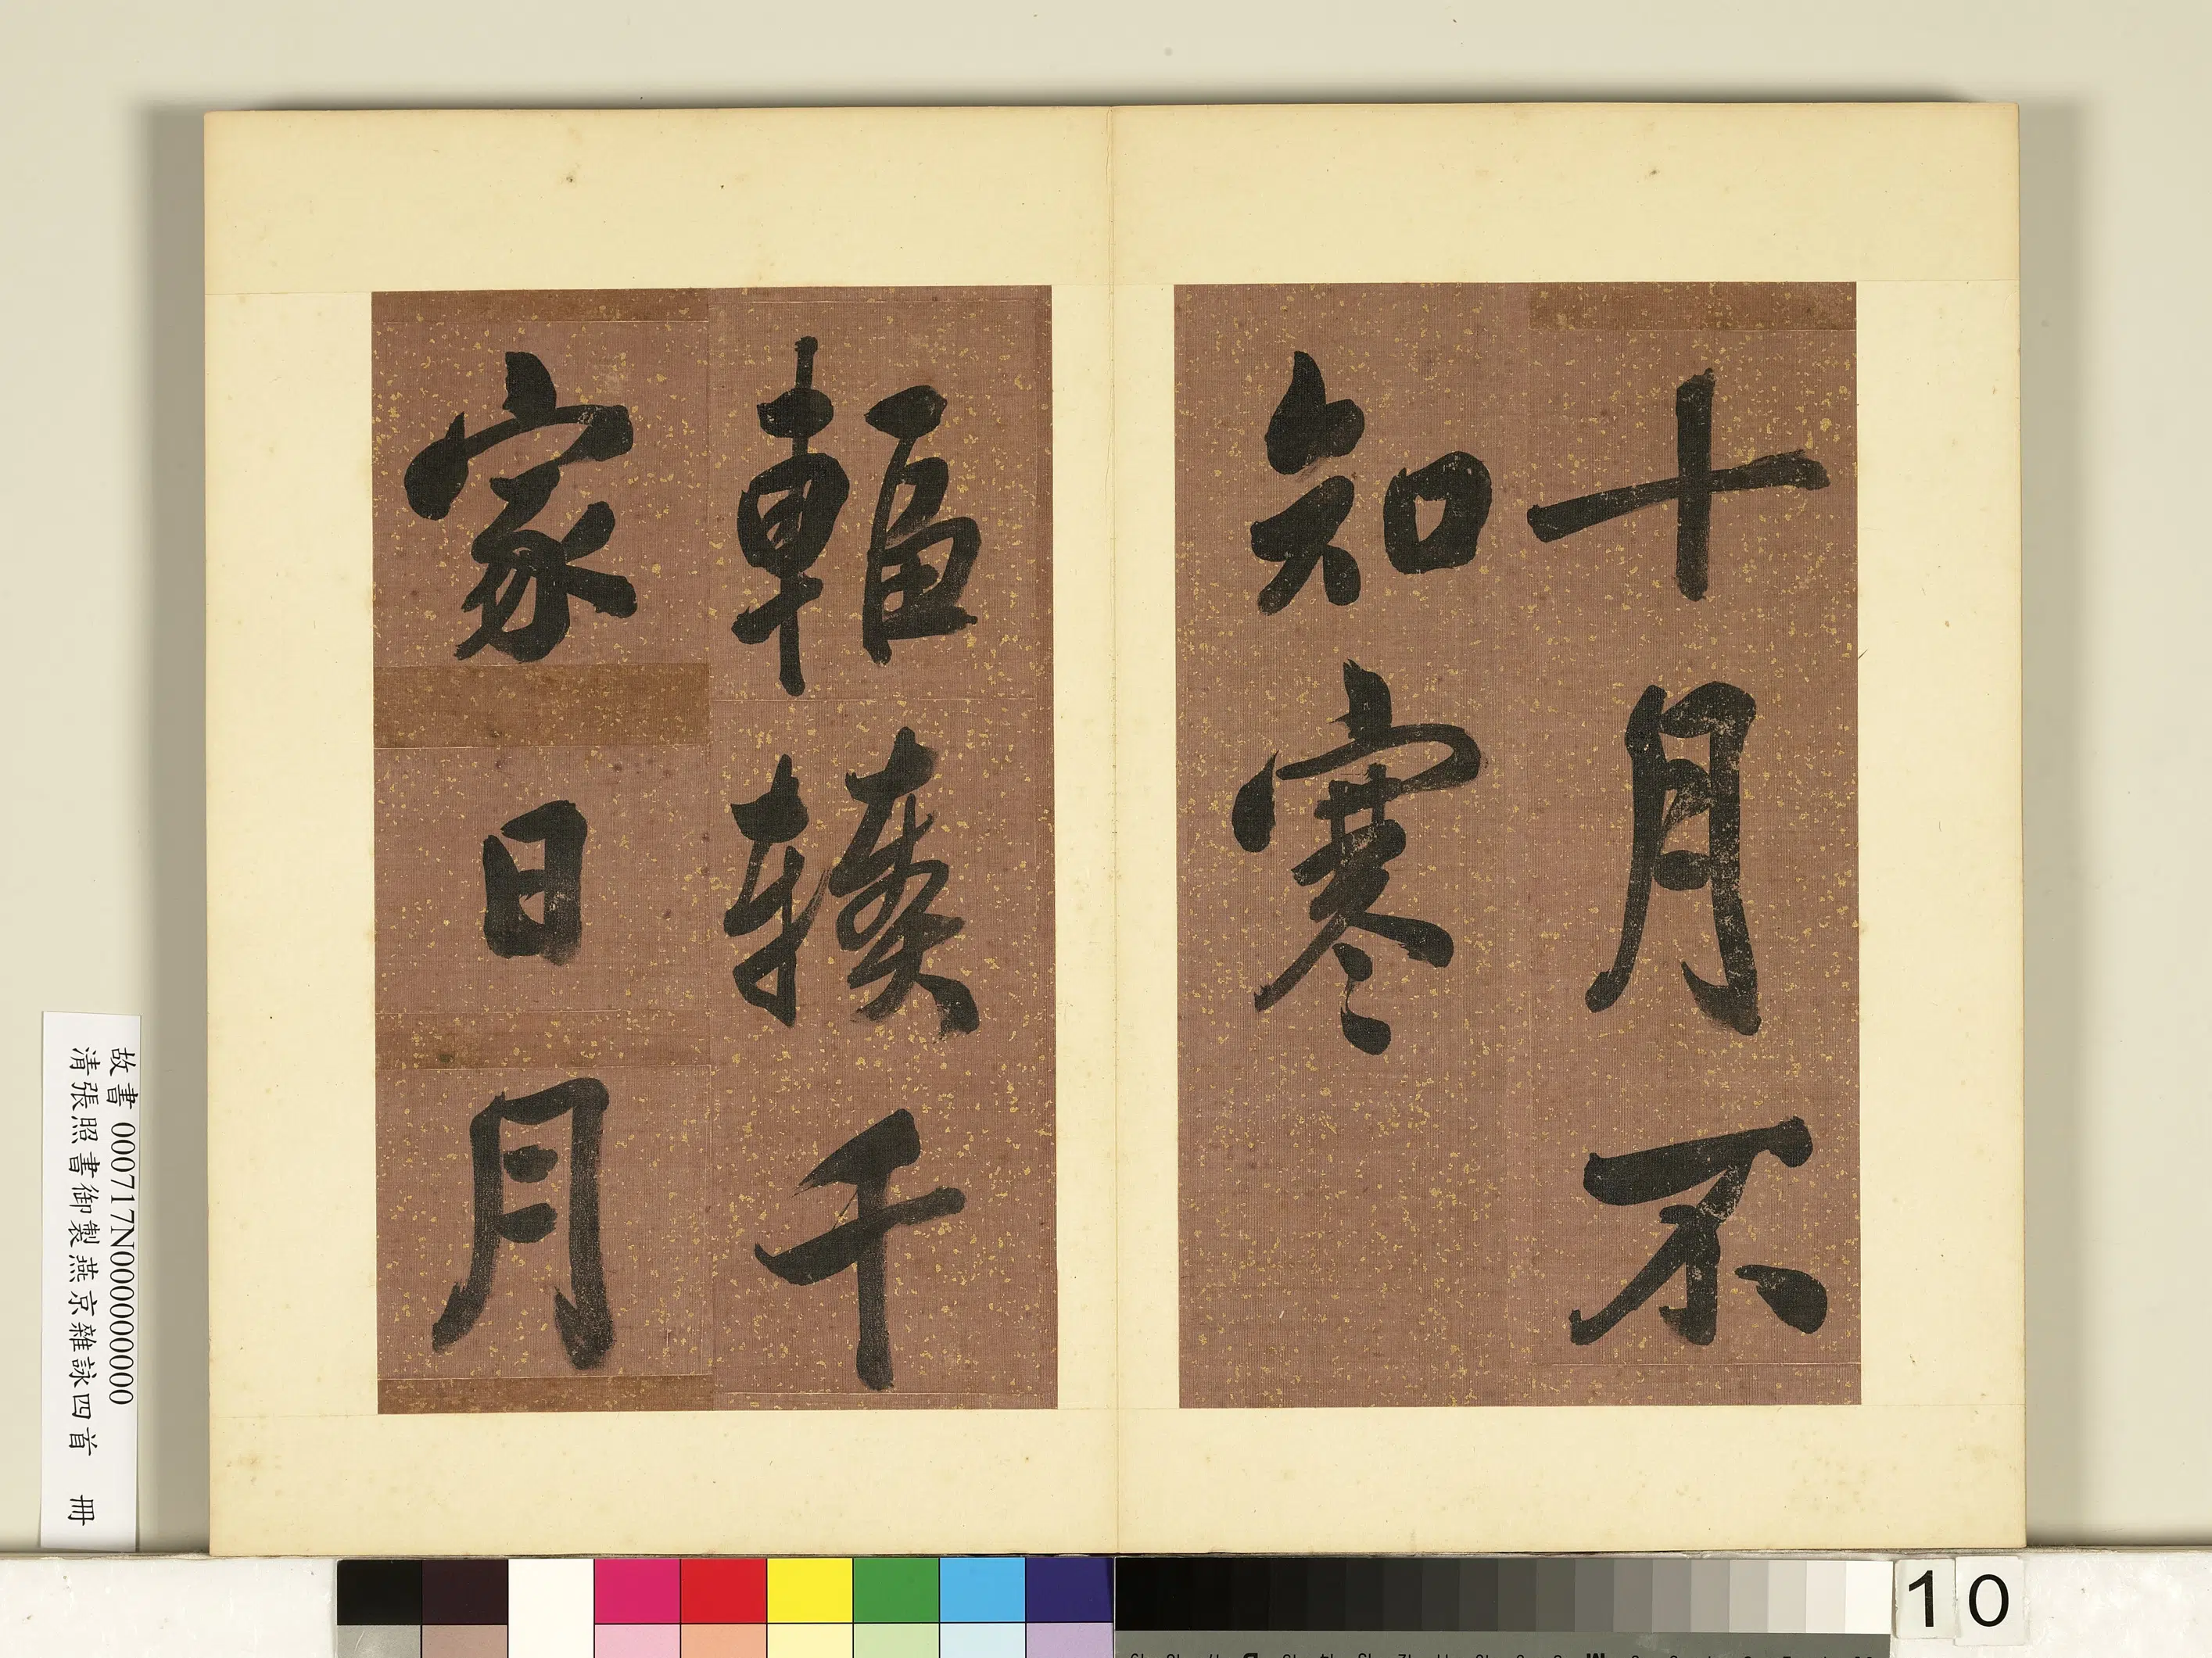 十月不
知寒
輻輳千
家日月
故書 000717N000000000
清張照書御製燕京雜詠四首 冊
10